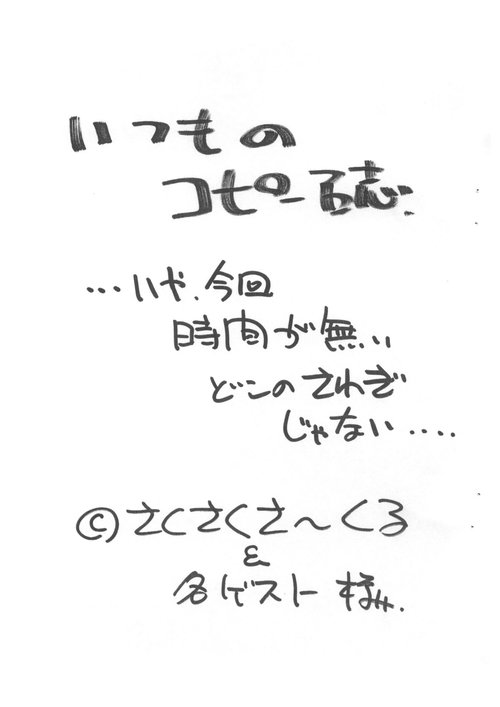 いつもの
コピー誌.
・・・いや.今回
時間が無い
どこのさわぎ
じゃない・・・・
©さくさくさ〜くる
&
各ゲスト様.